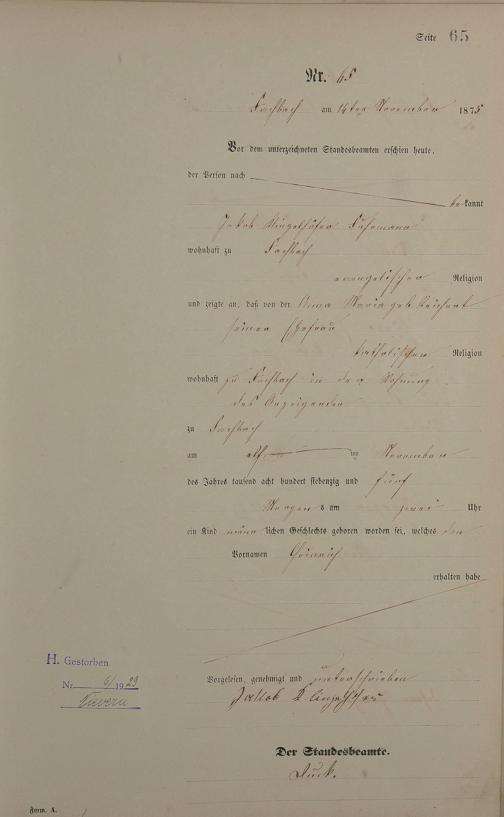 Seite 65
Nr. 65
Fachbach am 14ten November 1875
Vor dem unterzeichneten Standesbeamten erschien heute,
der Person nach
bekannt
Jakob Fuhrmann
wohnhaft zu Fachbach
evangelischer Religion
und zeigte an, daß von der Anna Maria geb.
seiner Ehefrau
katholischer Religion
wohnhaft zu Fachbach in der Wohnung
des Anzeigenden
zu Fachbach
am elf ten November
des Jahres tausend acht hundert siebenzig und fünf
Morgens um zwei Uhr
ein Kind männlichen Geschlechts geboren worden sei, welches den
Vornamen Heinrich
erhalten habe
Vorgelesen, genehmigt und unterschrieben
Jakob
Der Standesbeamte.
H. Gestorben
Nr. 6/1923
Form. A.